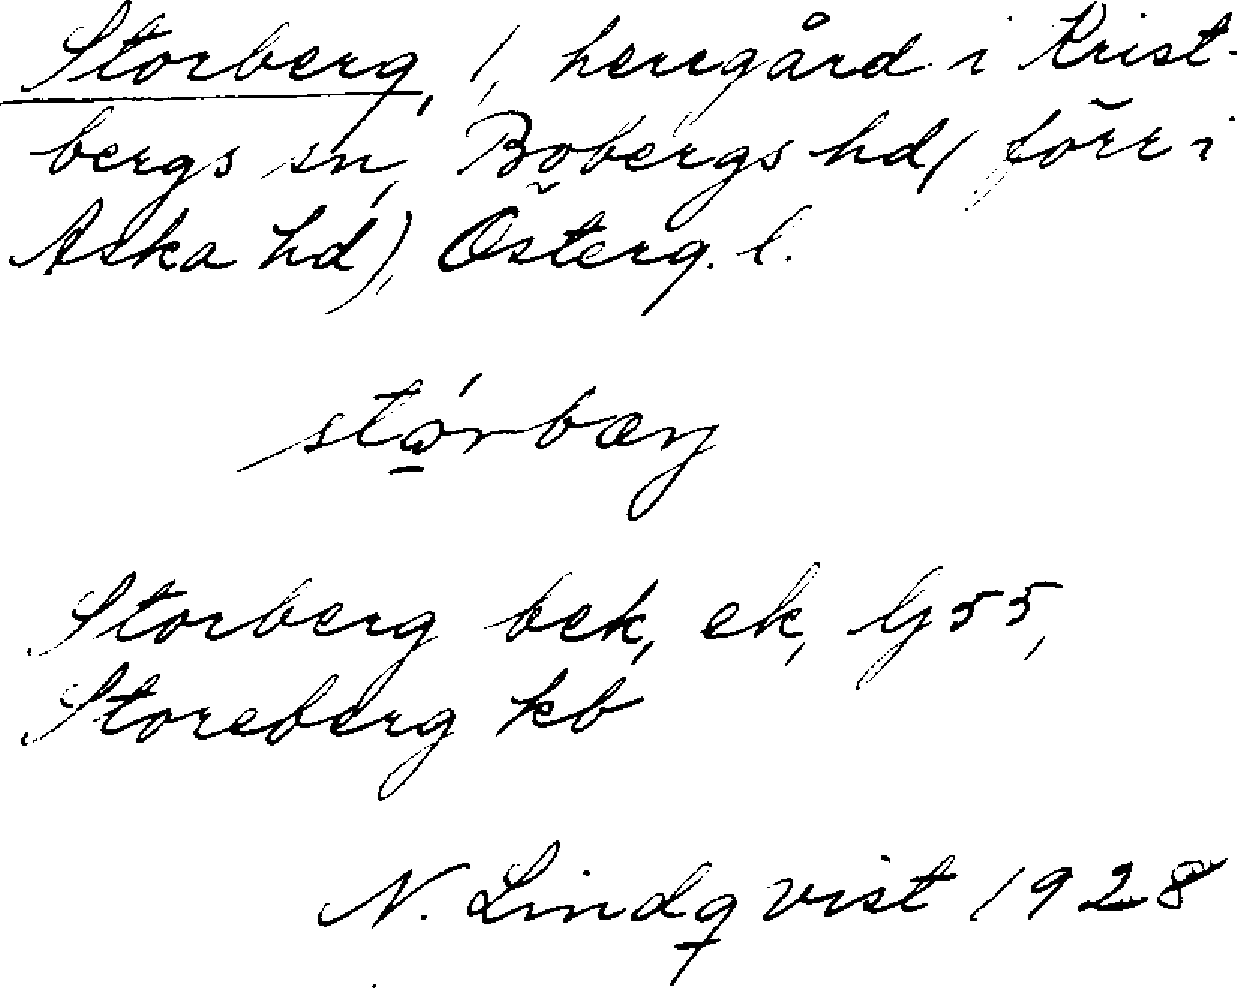 Storberg, 1, herrgård i Krist-
bergs sn, Bobergs hd (förr i
Aska hd), Österg. l.
stǫ́rbærj
Storberg bek, ek, Gj 55,
Storeberg kb
N. Lindqvist 1928